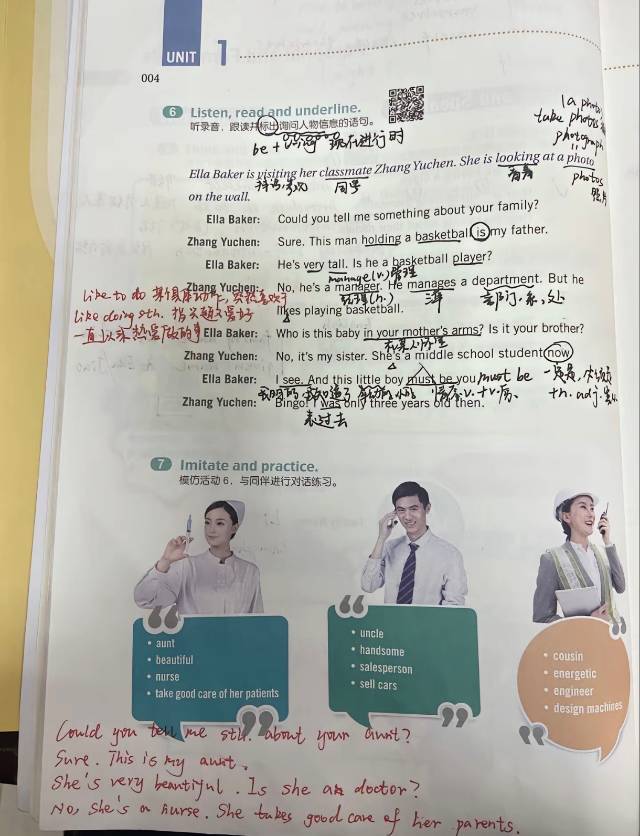 UNIT 1
004
6 Listen, read and underline.
听录音，跟读并标出询问人物信息的语句。
be + doing 现在进行时
la photo
take photos
photograph
photos
照片
Ella Baker is visiting her classmate Zhang Yuchen. She is looking at a photo
同学
看着
on the wall.
Ella Baker: Could you tell me something about your family?
Zhang Yuchen: Sure. This man holding a basketball is my father.
Ella Baker: He's very tall. Is he a basketball player?
manage(v.)管理
Zhang Yuchen: No, he's a manager. He manages a department. But he
经理(n.)
部门.系,处
likes playing basketball.
like to do
like doing sth.
Ella Baker: Who is this baby in your mother's arms? Is it your brother?
Zhang Yuchen: No, it's my sister. She's a middle school student now.
Ella Baker: I see. And this little boy must be you.
must be
Zhang Yuchen: Bingo! I was only three years old then.
表过去
7 Imitate and practice.
模仿活动 6，与同伴进行对话练习。
• aunt
• beautiful
• nurse
• take good care of her patients
• uncle
• handsome
• salesperson
• sell cars
• cousin
• energetic
• engineer
• design machines
Could you tell me sth. about your aunt?
Sure. This is my aunt.
She's very beautiful. Is she an doctor?
No, she's a nurse. She takes good care of her parents.